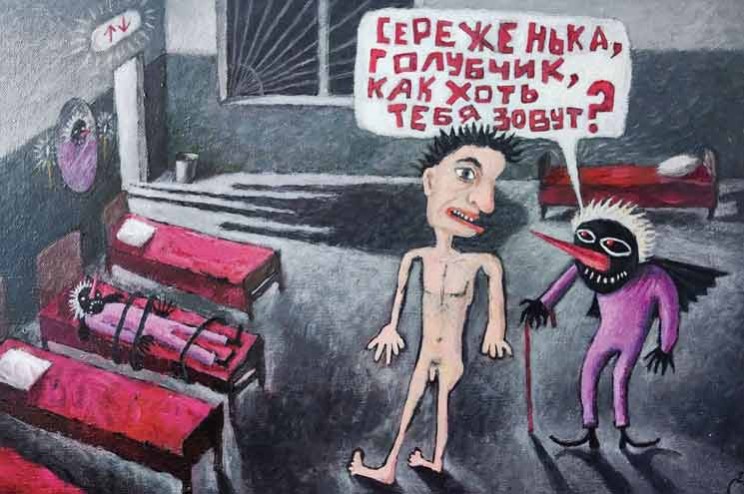 СЕРЕЖЕНЬКА,
ГОЛУБЧИК,
КАК ХОТЬ
ТЕБЯ ЗОВУТ?